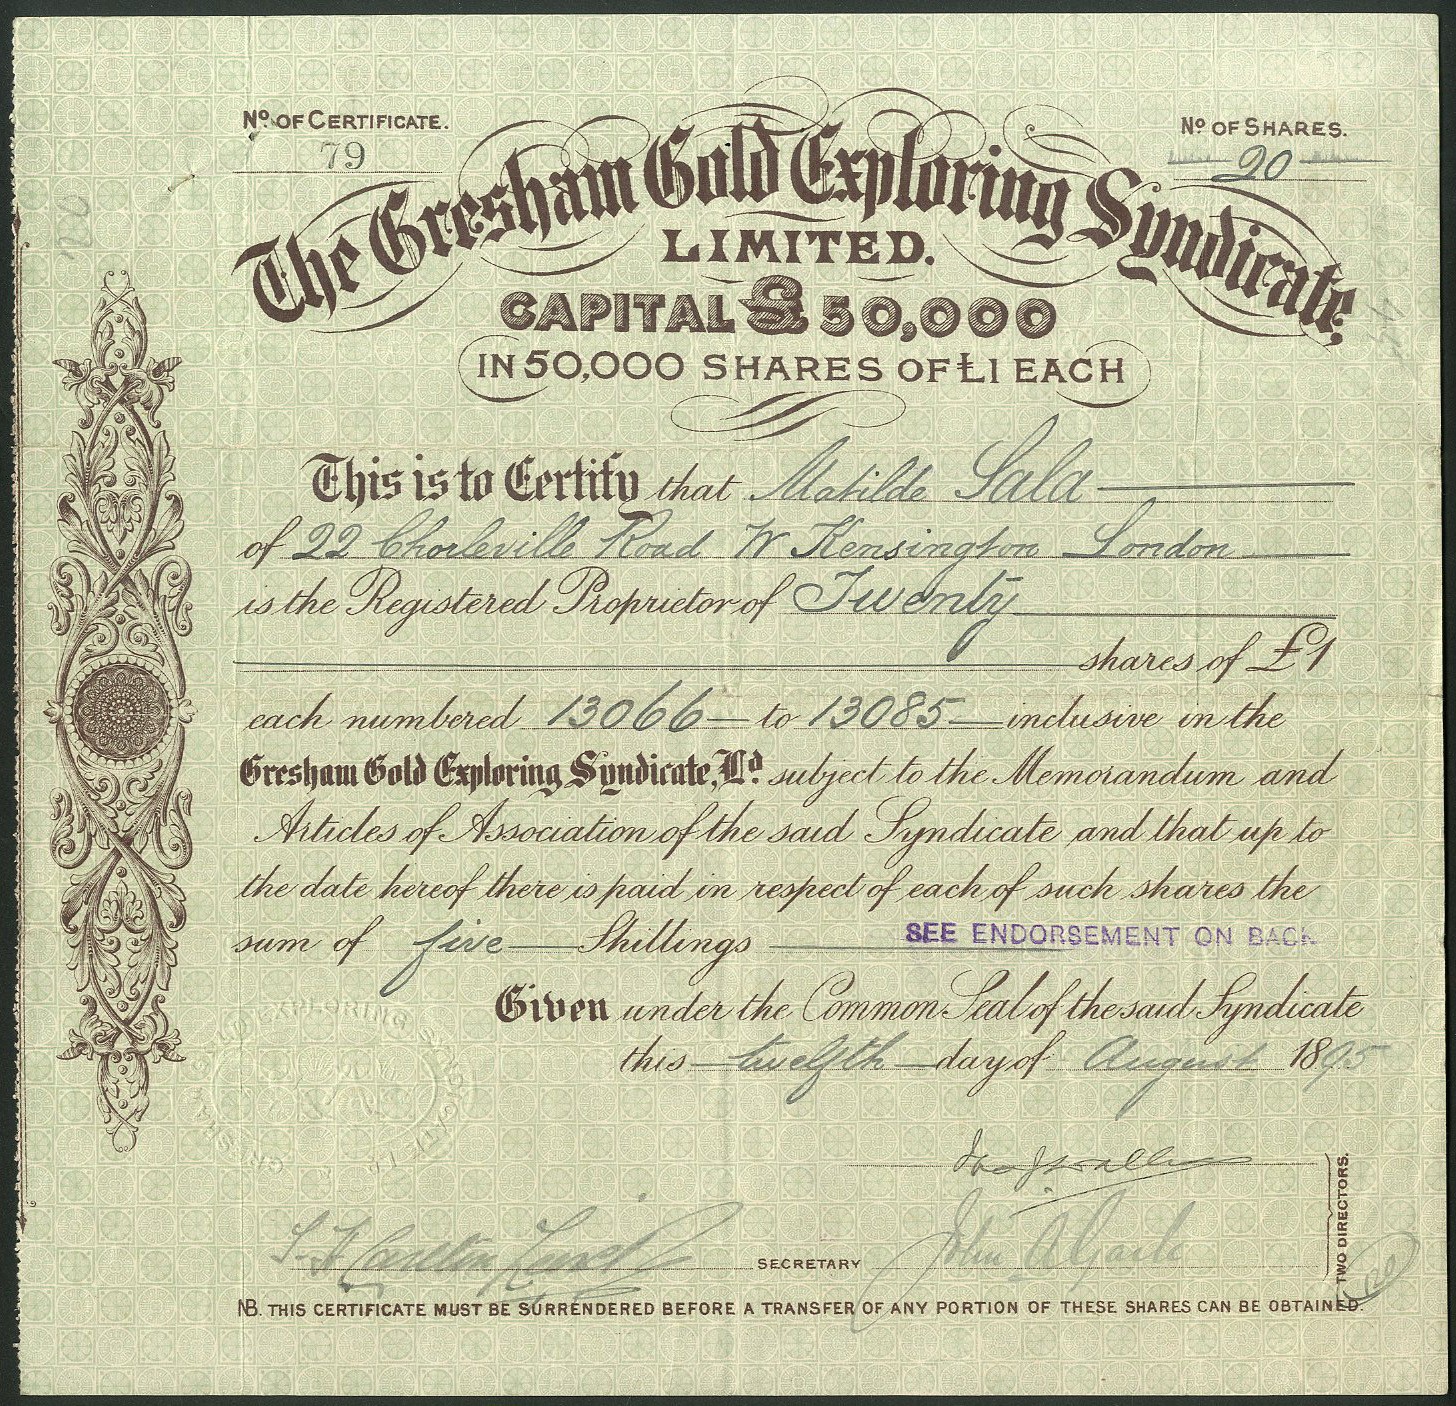 Nº OF CERTIFICATE.
79
Nº OF SHARES.
20
The Gresham Gold Exploring Syndicate,
LIMITED.
CAPITAL £50,000
IN 50,000 SHARES OF £1 EACH
This is to Certify that Matilde Sala
of 22 Charleville Road W Kensington London
is the Registered Proprietor of Twenty
shares of £1
each numbered 13066 to 13085 inclusive in the
Gresham Gold Exploring Syndicate, Ld subject to the Memorandum and
Articles of Association of the said Syndicate and that up to
the date hereof there is paid in respect of each of such shares the
sum of five Shillings
SEE ENDORSEMENT ON BACK
Given under the Common Seal of the said Syndicate
this twelfth day of August 1895
TWO DIRECTORS.
John
SECRETARY
120
NB. THIS CERTIFICATE MUST BE SURRENDERED BEFORE A TRANSFER OF ANY PORTION OF THESE SHARES CAN BE OBTAINED.